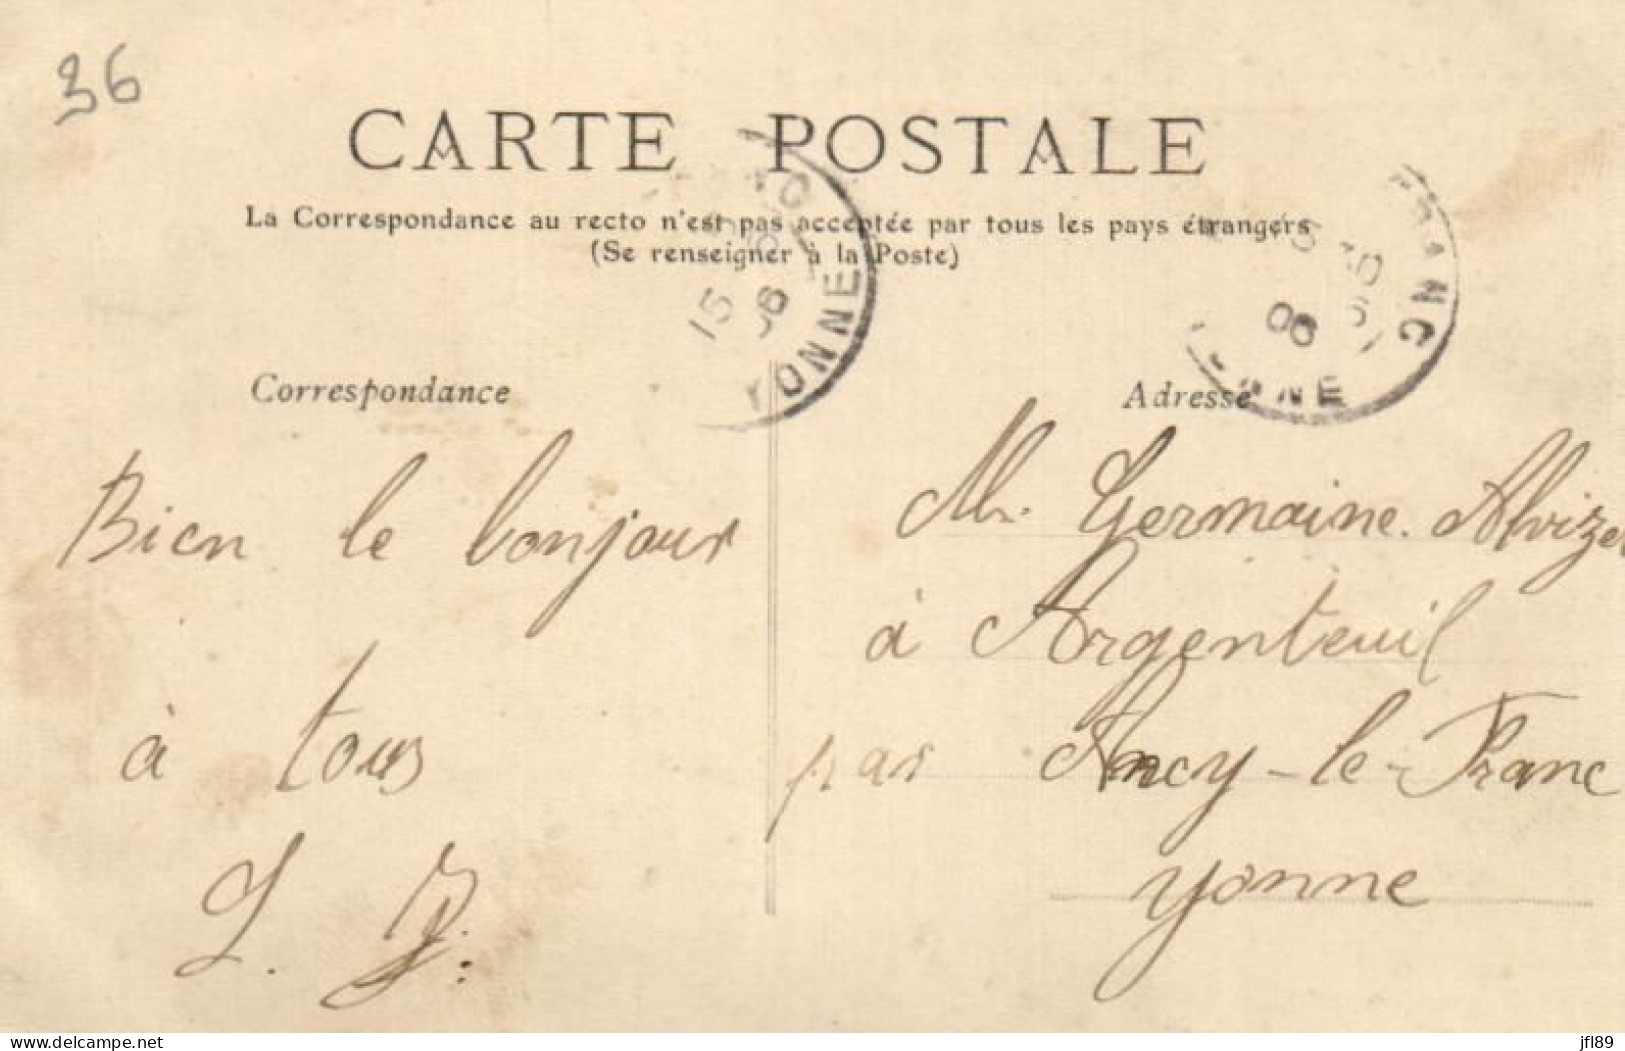 36
CARTE POSTALE
La Correspondance au recto n'est pas acceptée par tous les pays étrangers
(Se renseigner à la Poste)
15
06
YONNE
06
Correspondance
Adresse
Bien le bonjour
à tous
Germaine. Alvizet
à Argenteuil
par Ancy-le-Franc
Yonne
www.delcampe.net
jfl89